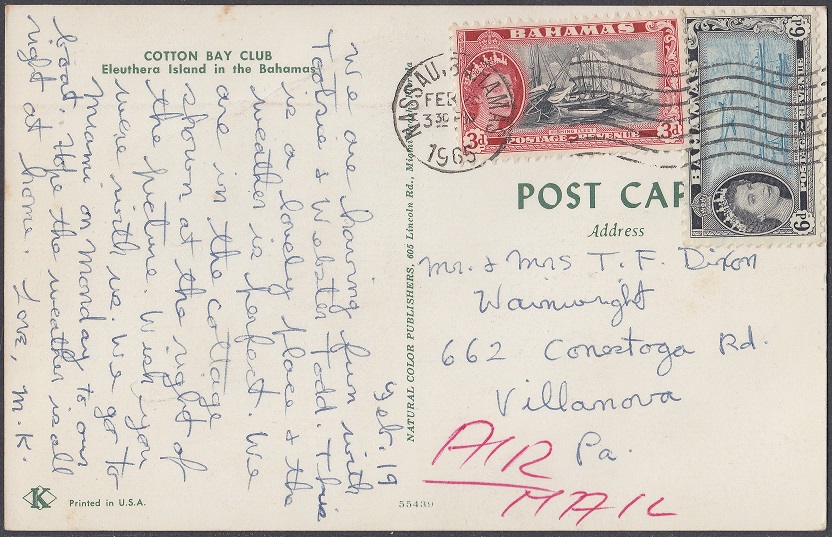 COTTON BAY CLUB
Eleuthera Island in the Bahamas
Feb. 19
We are having fun with
Tootsie & Webster Todd. This
is a lovely place & the
weather is perfect. We
are in the cottage
shown at the right of
the picture. Wish you
were with us. We go to
Miami on Monday to our
boat. Hope the weather is all
right at home. Love, M.K.
K
Printed in U.S.A.
NATURAL COLOR PUBLISHERS, 605 Lincoln Rd., Miami
55439
NASSAU, BAHAMAS
FEB
3 30 PM
1965
BAHAMAS
3d
3d
POSTAGE REVENUE
BAHAMAS
9d
9d
POSTAGE REVENUE
POST CAR
Address
Mr. & Mrs T. F. Dixon
Wainwright
662 Conestoga Rd.
Villanova
Pa.
AIR
MAIL